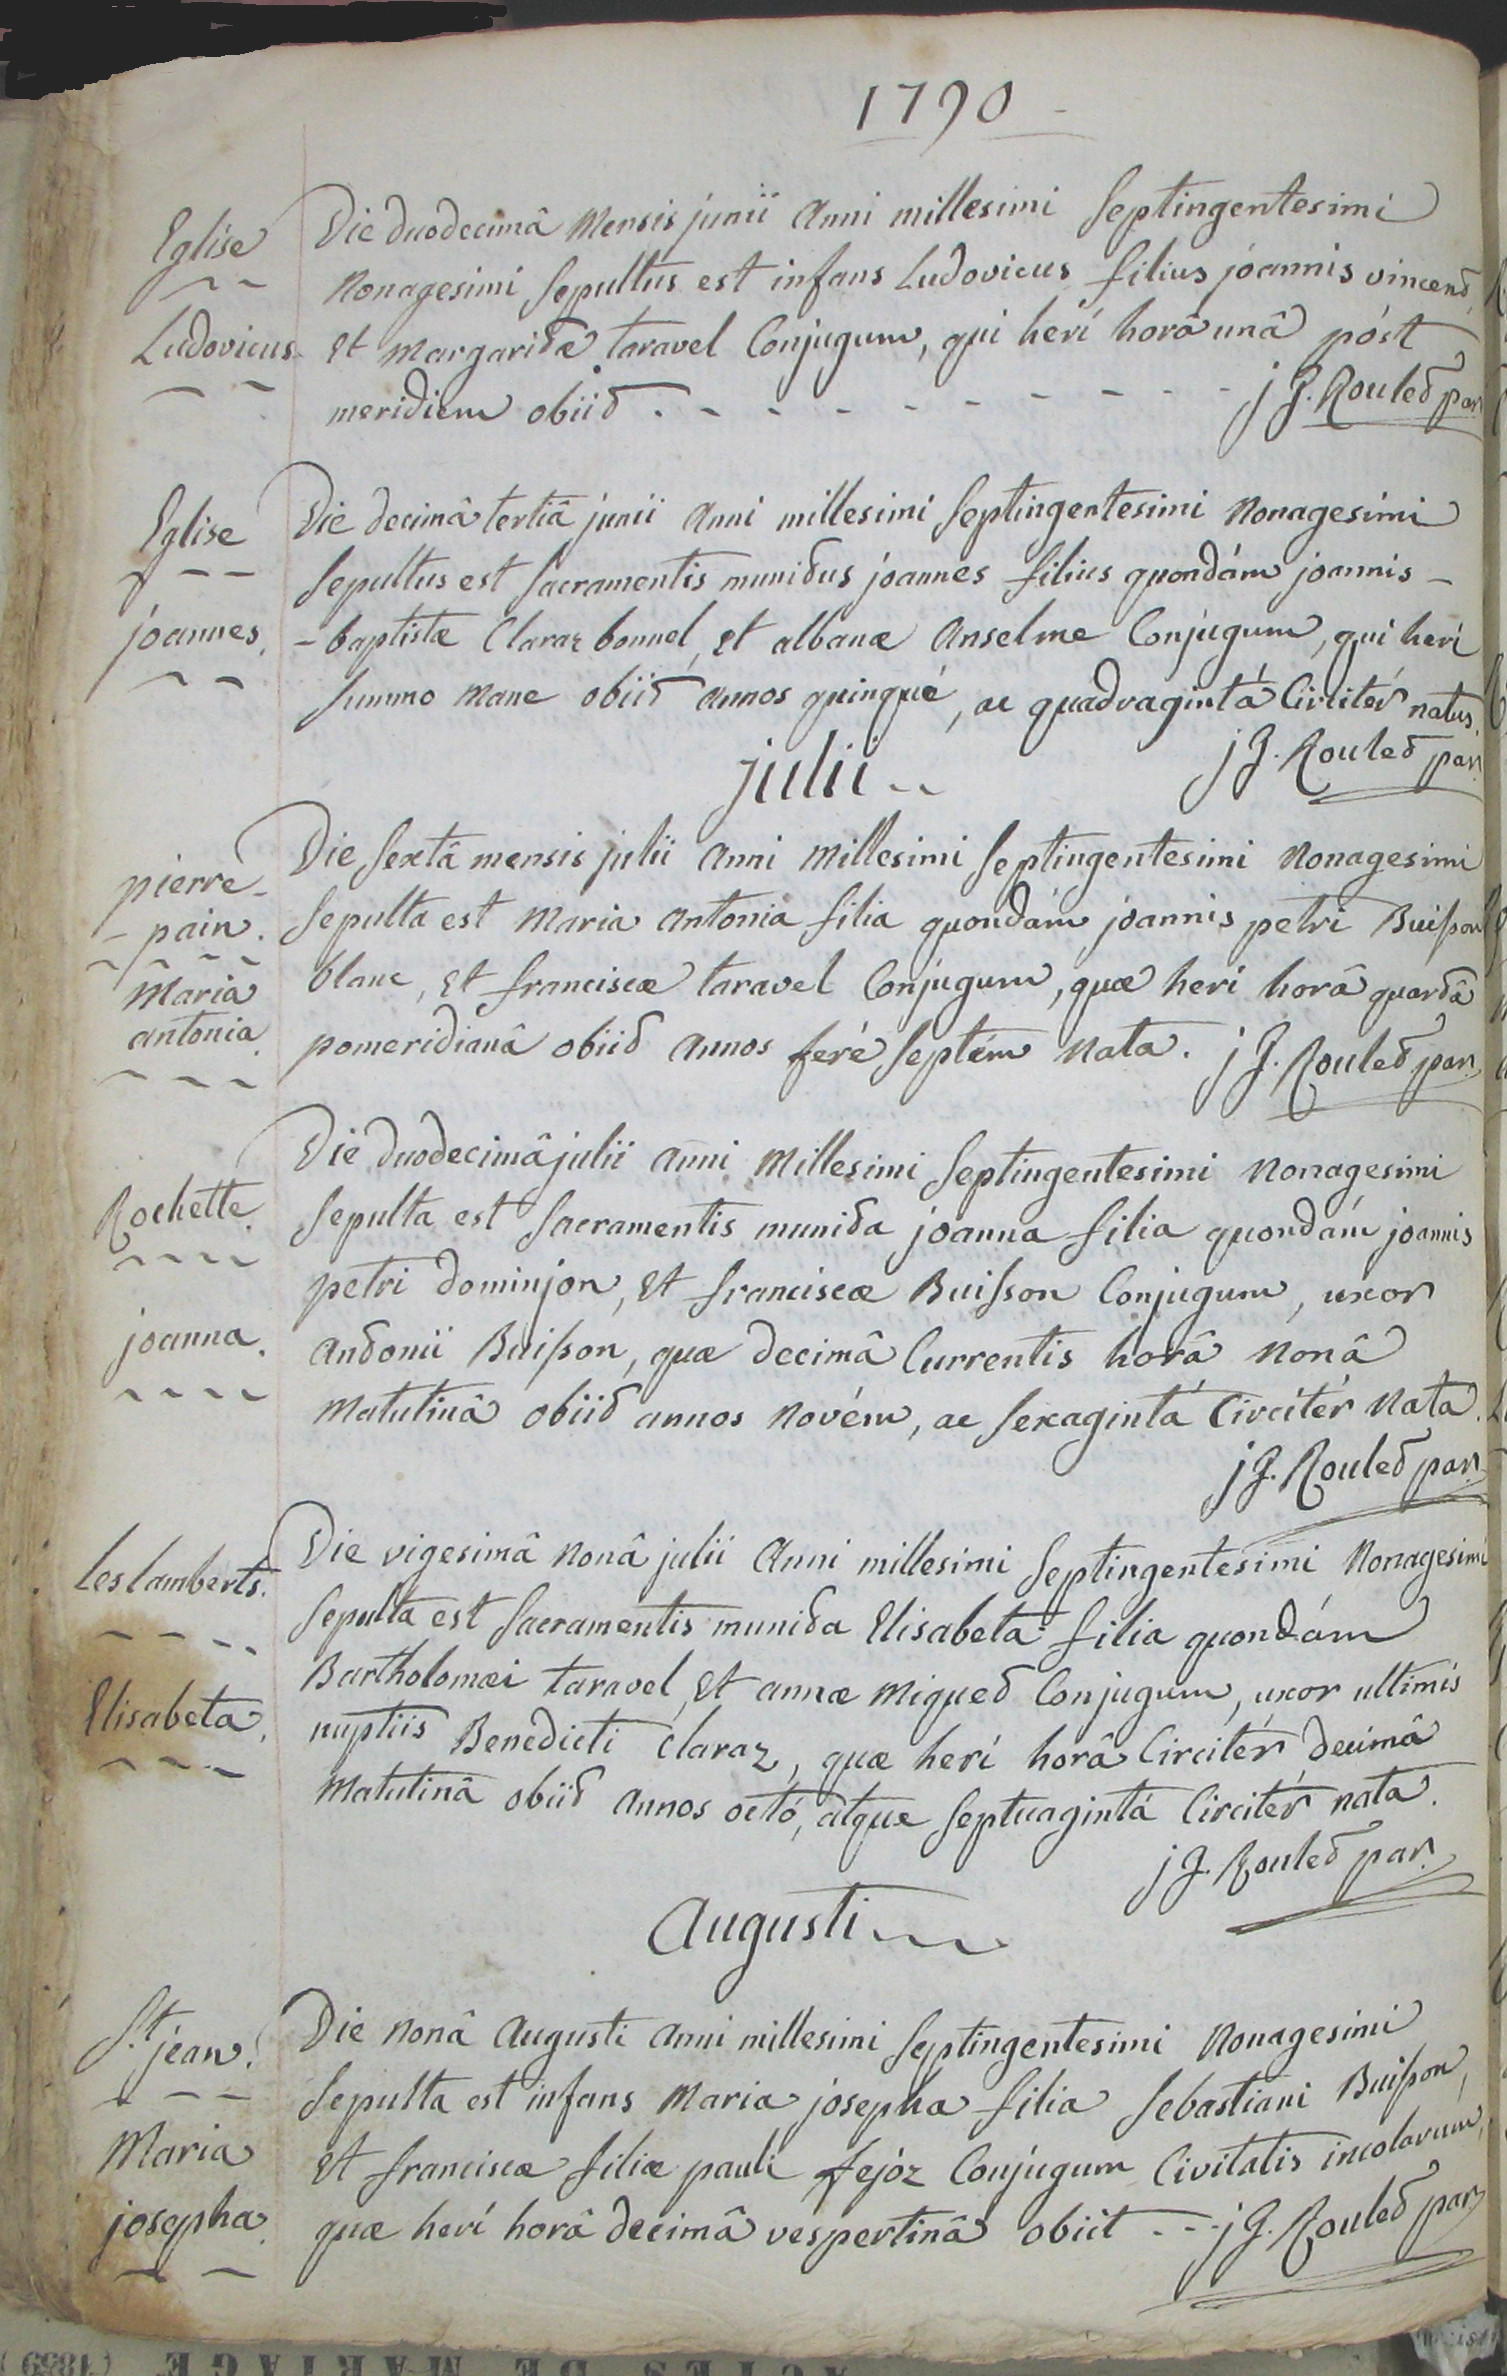 1790
Eglise
Ludovicus
Die duodecimâ mensis junii anni millesimi septingentesimi
nonagesimi sepultus est infans Ludovicus filius joannis vincend
et margaritæ taravel Conjugum, qui herí horâ unâ póst
meridiem obiit . - - - - - - - - - j J. Roulet par.
Eglise
joannes.
Die decimâ tertiâ junii anni millesimi septingentesimi nonagesimi
sepultus est sacramentis munitus joannes filius quondám joannis -
- baptistæ Claraz bonnel, et albanæ anselme Conjugum, qui herí
summo mane obiit annos quinqué, ac quadragintá Circitér natus.
j J. Roulet par.
julii
pierre-
- pain.
Maria
antonia.
Die sextâ mensis julii anni millesimi septingentesimi nonagesimi
sepulta est Maria antonia filia quondám joannis petri Buisson
blanc, et franciscæ taravel Conjugum, quæ herí horâ quartâ
pomeridianâ obiit annos feré septém nata. j J. Roulet par.
Rochette.
joanna.
Die duodecimâ julii anni millesimi septingentesimi nonagesimi
sepulta est sacramentis munita joanna filia quondám joannis
petri dominjon, et franciscæ Buisson Conjugum, uxor
antonii Buisson, quæ decimâ Currentis horâ nonâ
matutinâ obiit annos novém, ac sexagintá Circitér nata.
j J. Roulet par.
Les lamberts.
Elisabeta.
Die vigesimâ nonâ julii anni millesimi septingentesimi nonagesimi
sepulta est sacramentis munita Elisabeta filia quondám
Bartholomæi taravel, et annæ miquet Conjugum, uxor ultimis
nuptiis Benedicti Claraz, quæ herí horâ Circitér decimâ
matutinâ obiit annos octó, atque septuagintá Circitér nata.
j J. Roulet par.
Augusti
St. jean.
Maria
josepha.
Die nonâ Augusti anni millesimi septingentesimi nonagesimi
sepulta est infans Maria josepha filia sebastiani Buisson,
et franciscæ filiæ pauli fejóz Conjugum Civitatis incolarum,
quæ herí horâ decimâ vespertinâ obiit - - - j J. Roulet par.
ACTES DE MARIAGE (1859)